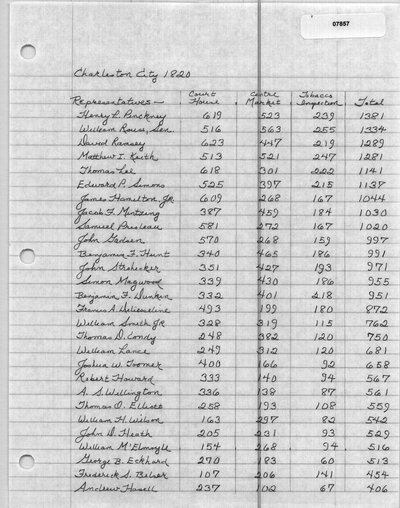 07857
Charleston City 1820
Representatives — Court House Centre Market Tobacco Inspection Total
Henry L. Pinckney 619 523 239 1381
William Rouse, Sen. 516 563 255 1334
David Ramsey 623 447 219 1289
Matthew I. Keith 513 521 247 1281
Thomas Lee 618 301 222 1141
Edward P. Simons 525 397 215 1137
James Hamilton Jr. 609 268 167 1044
Jacob F. Mintzing 387 459 184 1030
Samuel Prioleau 581 272 167 1020
John Gadsen 570 268 159 997
Benjamin F. Hunt 340 465 186 991
John Strohecker 351 427 193 971
Simon Magwood 339 430 186 955
Benjamin F. Dunkin 332 401 218 951
Francis A. Deliesseline 493 199 180 872
William Smith Jr. 328 319 115 762
Thomas D. Condy 248 382 120 750
William Lance 249 312 120 681
Joshua W. Toomer 400 166 92 658
Robert Howard 333 140 94 567
A. S. Willington 336 138 87 561
Thomas O. Elliott 258 193 108 559
William H. Wilson 163 297 82 542
John D. Heath 205 231 93 529
William M'Elmoyle 154 268 94 516
George B. Eckhard 270 183 60 513
Frederick S. Belser 107 206 141 454
Andrew Hasell 237 102 67 406